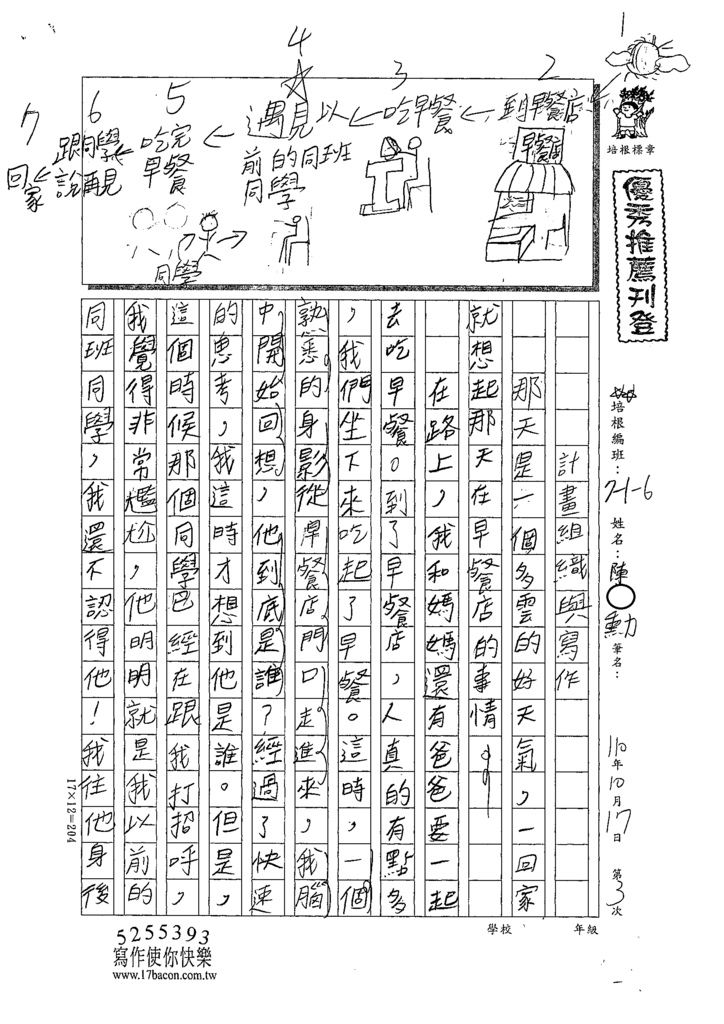 1
2
到早餐店
早餐店
3
吃早餐
4
遇見以
前的同班
同學
5
吃完
早餐
同學
6
跟同學
說再見
7
回家
培根標章
優秀推薦刊登
培根編班：2-1-6 姓名：陳○勳 筆名：
110年10月17日 第3次
計畫組織與寫作
那天是一個多雲的好天氣，一回家
就想起那天在早餐店的事情。
在路上，我和媽媽還有爸爸要一起
去吃早餐。到了早餐店，人真的有點多
，我們坐下來吃起了早餐。這時，一個
熟悉的身影從早餐店門口走進來，我腦
中開始回想，他到底是誰？經過了快速
的思考，我這時才想到他是誰。但是，
這個時候那個同學已經在跟我打招呼，
我覺得非常尷尬，他明明就是我以前的
同班同學，我還不認得他！我往他身後
17×12=204
學校 年級
5255393
寫作使你快樂
www.17bacon.com.tw